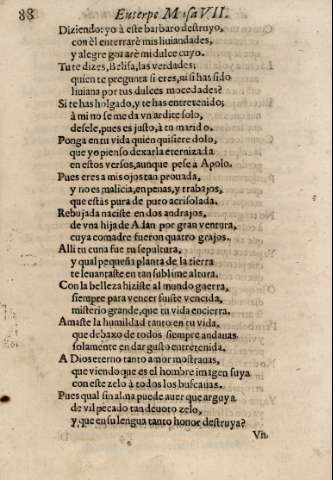 88 Euterpe Musa VII.
Diziendo: yo à este barbaro destruyo,
con èl enterrarè mis huiandades,
y alegre gozarè mi dulce cuyo.
Tu te dizes, Belisa, las verdades;
quien te pregunta si eres, ni si has sido
liuiana por tus dulces mocedades?
Si te has holgado, y te has entretenido;
à mi no se me da vn ardite solo,
desele, pues es justo, à tu marido.
Ponga en tu vida quien quisiere dolo,
que yo pienso dexarla eternizada
en estos versos, aunque pese a Apolo.
Pues eres a mis ojos tan prouada,
y no es malicia, en penas, y trabajos,
que estàs pura de puro acrisolada.
Rebujada naciste en dos andrajos,
de vna hija de Adan por gran ventura,
cuya comadre fueron quatro grajos.
Alli tu cuna fue tu sepultura,
y qual pequeña planta de la tierra
te leuantaste en tan sublime altura.
Con la belleza hiziste al mundo guerra,
siempre para vencer fuiste vencida,
misterio grande, que tu vida encierra.
Amaste la humildad tanto en tu vida,
que debaxo de todos siempre andauas
solamente en dar gusto entretenida.
A Dios eterno tanto amor mostrauas,
que viendo que es el hombre imagen suya
con este zelo à todos los buscauas.
Pues qual sin alma puede auer que arguya
de vil pecado tan deuoto zelo,
y que en su lengua tanto honor destruya?
Vn